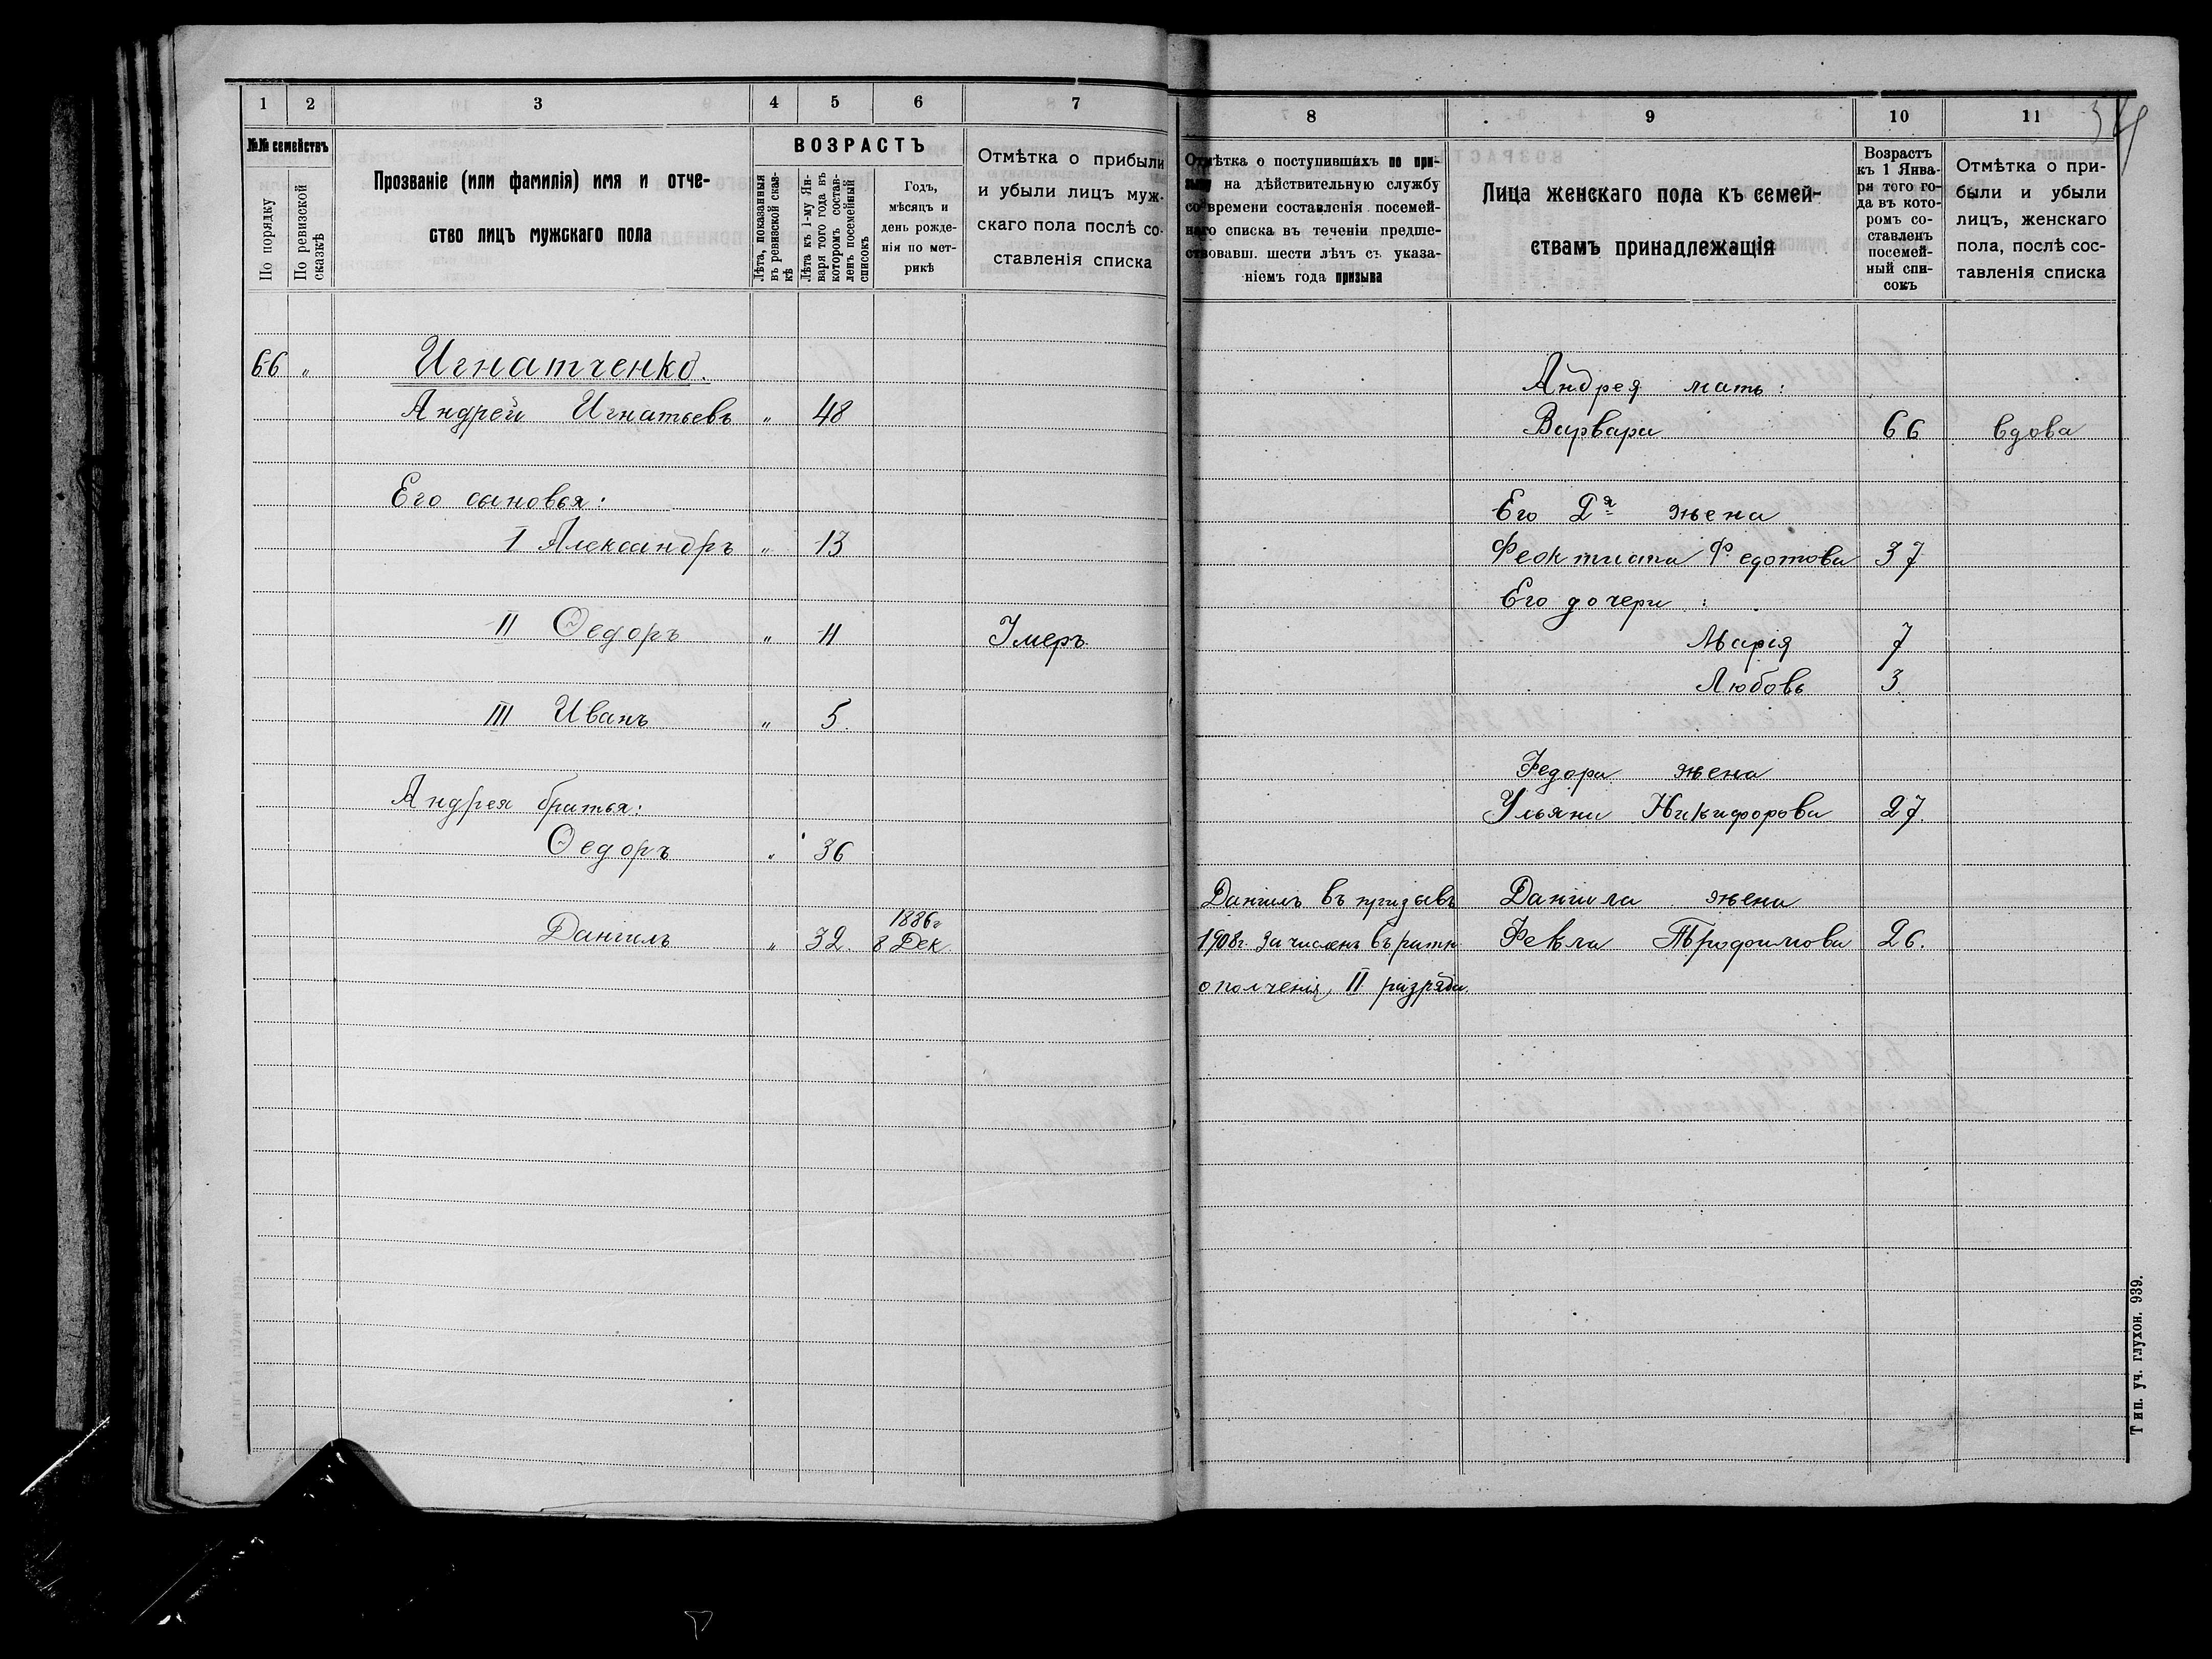 1 2 3 4 5 6 7
№№ семействъ
По порядку
По ревизской сказкѣ
Прозваніе (или фамилія) имя и отче-
ство лицъ мужскаго пола
ВОЗРАСТЪ
Лѣта, показанныя
въ ревизской сказ-
кѣ
Лѣта къ 1-му Ян-
варя того года въ
которомъ состав-
ленъ посемейный
списокъ
Годъ,
мѣсяцъ и
день рожде-
нія по мет-
рикѣ
Отмѣтка о прибыли
и убыли лицъ муж-
скаго пола послѣ со-
ставленія списка
66 „ Игнатченко.
Андрей Игнатьевъ „ 48
Его сыновья:
I Александръ „ 13
II Ѳедоръ „ 11 Умеръ
III Иванъ „ 5.
Андрея братья:
Ѳедоръ „ 36
1886г
Даніилъ „ 32 8 Дек.
8 9 10 11
Отмѣтка о поступившихъ по при-
зыву на дѣйствительную службу
со времени составленія посемей-
наго списка въ теченіи предше-
ствовавш. шести лѣтъ съ указа-
ніемъ года призыва
Лица женскаго пола къ семей-
ствамъ принадлежащія
Возрастъ
къ 1 Янва-
ря того го-
да въ кото-
ромъ со-
ставленъ
посемей-
ный спи-
сокъ
Отмѣтка о при-
были и убыли
лицъ, женскаго
пола, послѣ сос-
тавленія списка
Андрея мать:
Варвара 66 вдова
Его 2я жена
Феоктиста Федотова 37
Его дочери :
Марія 7
Любовь 3
Федора жена
Ульяна Никифорова 27.
Даніилъ въ призывъ Даніила жена
1908г. зачисленъ въ ратн. Фекла Трофимова 26.
ополченія, II разряда.
Тип. уч. глухон. 939.